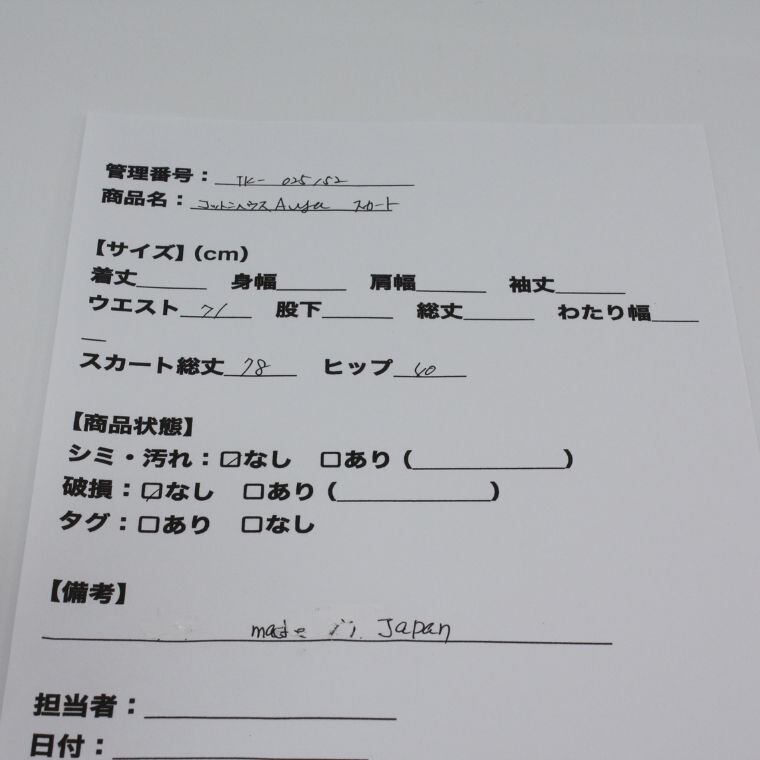 管理番号：TK-025152
商品名：コットンハウスAuya スカート
【サイズ】(cm)
着丈______ 身幅______ 肩幅______ 袖丈______
ウエスト 71 股下______ 総丈______ わたり幅______
スカート総丈 78 ヒップ 40
【商品状態】
シミ・汚れ：☑なし □あり（____________）
破損：☑なし □あり（____________）
タグ：□あり □なし
【備考】
made in Japan
担当者：____________________
日付：____________________